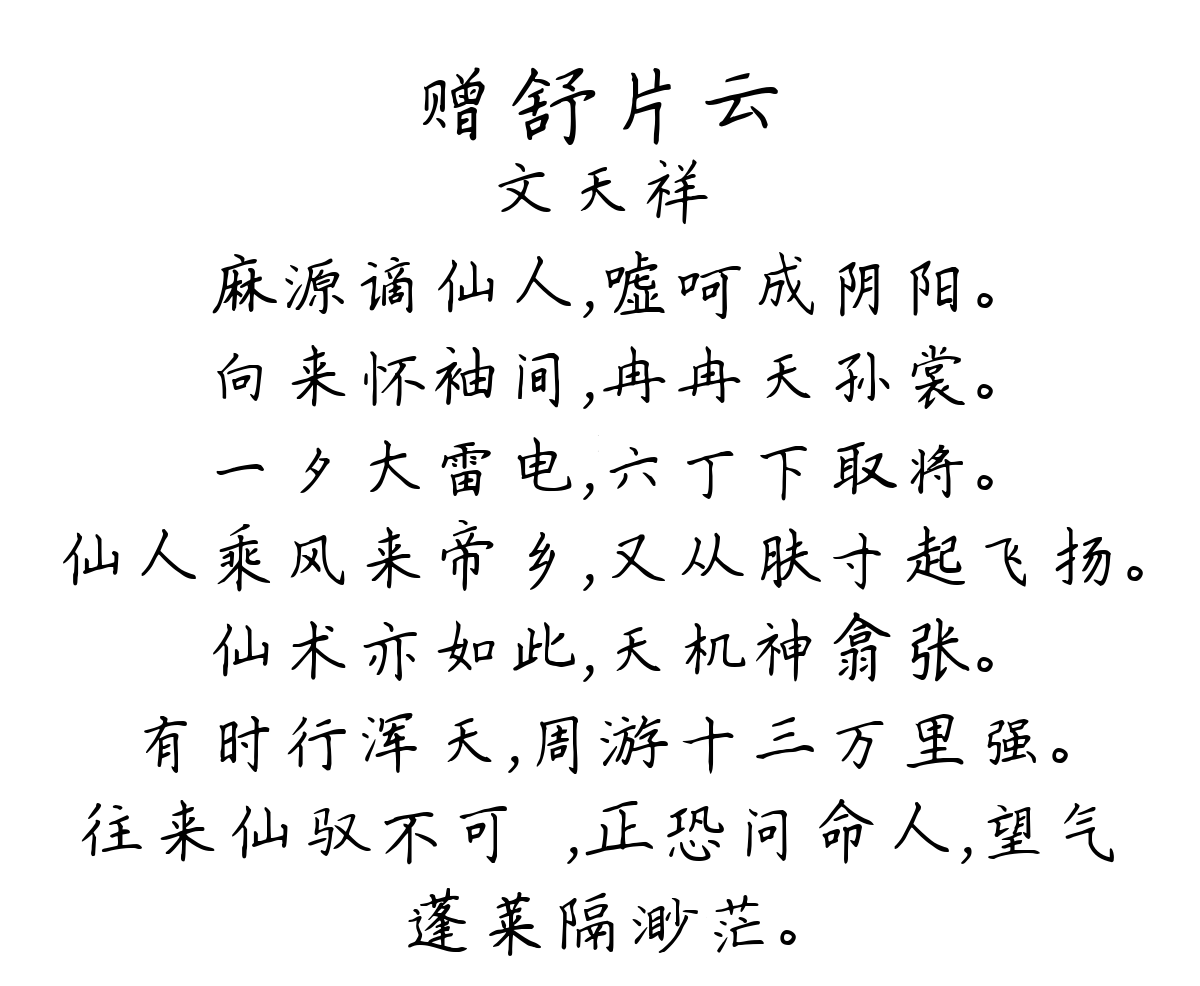 赠舒片云
文天祥
麻源谪仙人,嘘呵成阴阳。
向来怀袖间,冉冉天孙裳。
一夕大雷电,六丁下取将。
仙人乘风来帝乡,又从肤寸起飞扬。
仙术亦如此,天机神翕张。
有时行浑天,周游十三万里强。
往来仙驭不可 ,正恐问命人,望气
蓬莱隔渺茫。